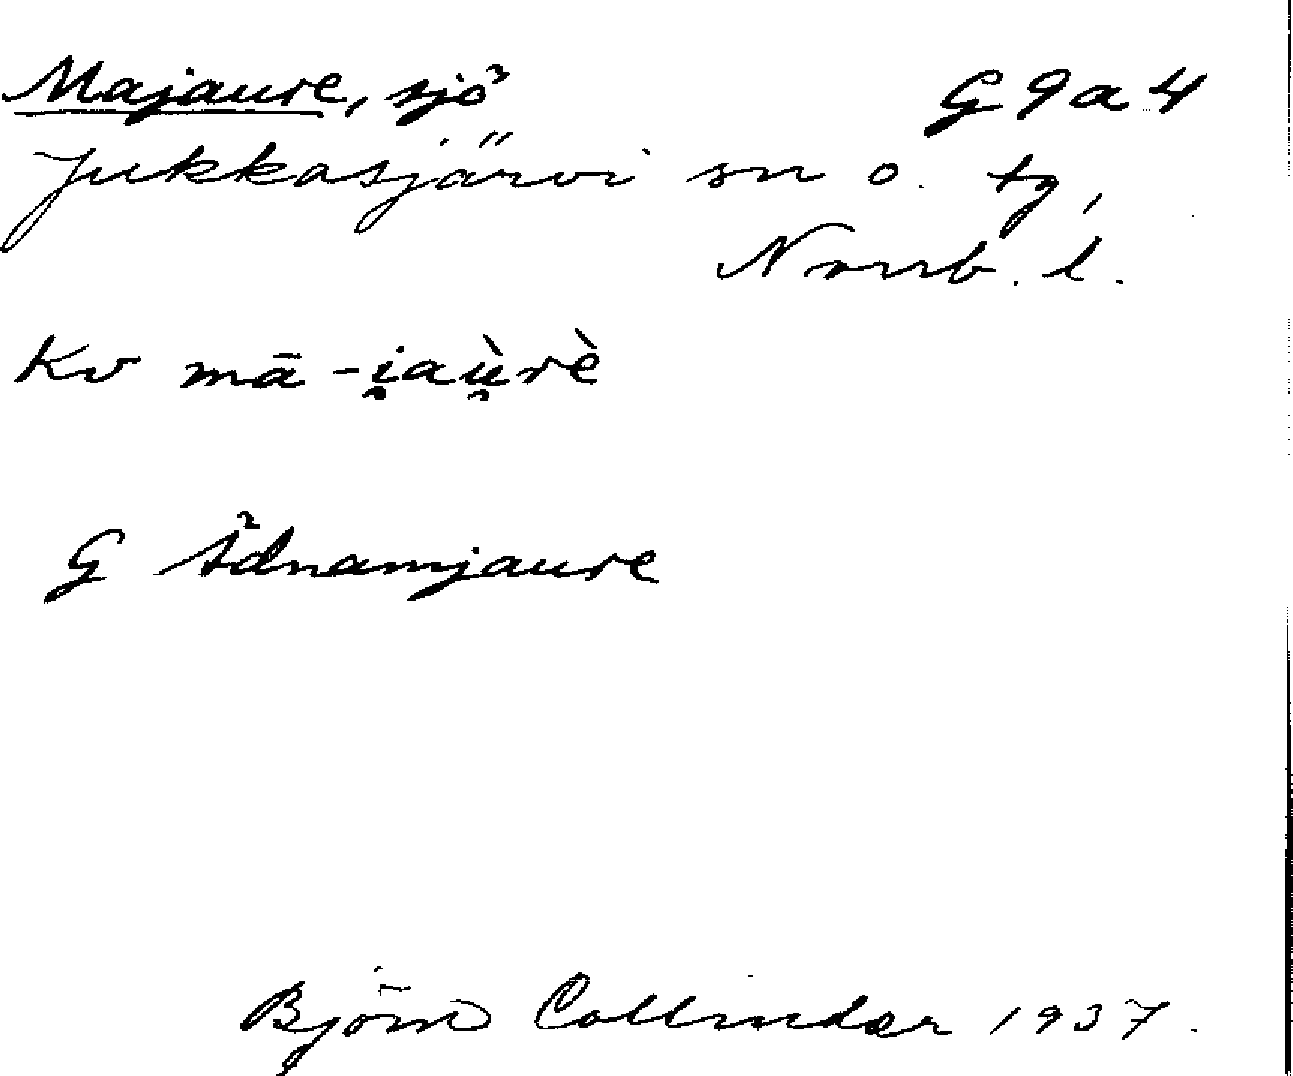 Majaure, sjö G 9 a 4
Jukkasjärvi sn o. tg,
Norrb. l.
Kv mā-i̯aù̯rè
G Ädnamjaure
Björn Collinder 1937.